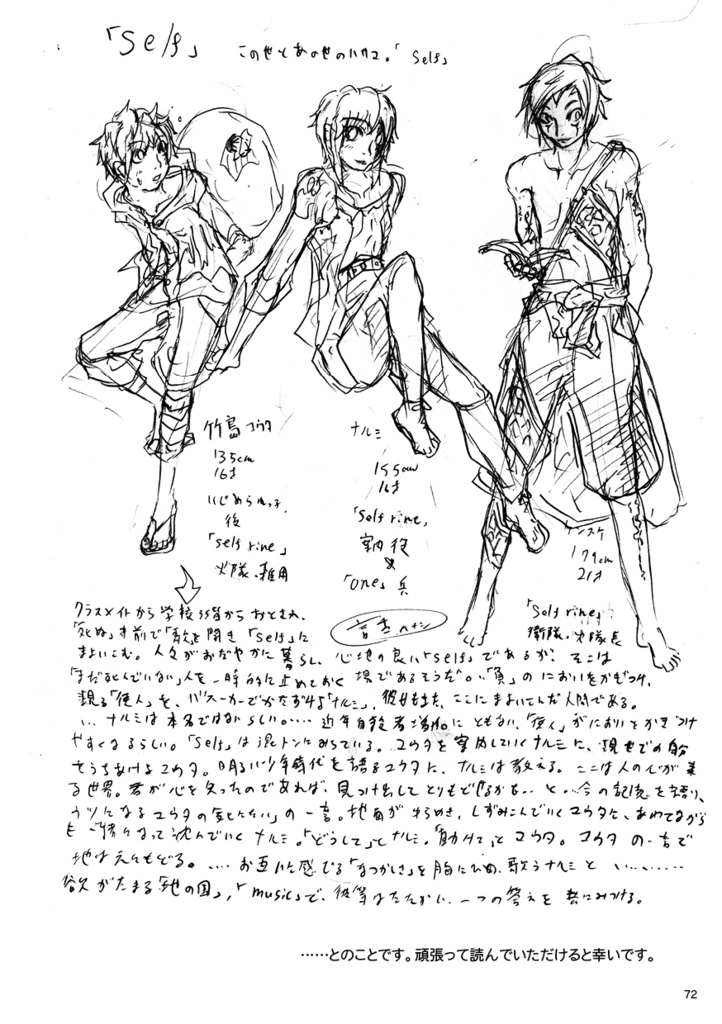 「Self」 この世とあの世のハザマ。「Self」
竹島コウタ
135cm
16才
いじめられっ子
後
「self rine」
火隊、雑用
ナルミ
155cm
16才
「Self rine」
案内役
「one」兵
ンスケ
179cm
21才
「Self rine」
衛隊、火隊長
クラスメイトから学校3階からおとされ、
「死ぬ」寸前で「歌を聞き「Self」に
まよいこむ。人々がおだやかに暮らし、心地の良い「Self」であるが、そこは
「まだ死んでいない」人を一時的に止めておく場であるそうだ。「負」のにおいをかぎつけ、
現る「使人」を、バズーカーでかたづける「ナルミ」、彼女もまた、ここにまよいこんだ人間である。
…ナルミは本名ではないらしい。…近年自殺者増加にともない、「使人」がにおいをかぎつけ
やすくなるらしい。「Self」は混トンにみちている。コウタを案内していくナルミに、現世での
うちあけるコウタ。明るい少年時代を語るコウタに、ナルミは教える。ここは人の心が
る世界。君が心を失ったのであれば、見つけ出してとりもどせるかも…と。今の記憶を語り、
ウツになるコウタの「死にたい」の一言。地面がゆらめき、しずみこんでいくコウタに、あわてながら
も一緒になって沈んでいくナルミ。「どうして」とナルミ。「助けて」とコウタ。コウタの一言で
地は元にもどる。…お互いに感じる「なつかしさ」を胸にひめ、歌うナルミと…
欲がたまる「地の国」、「music」で、彼等はたたかい、一つの答えを共にみつける。
……とのことです。頑張って読んでいただけると幸いです。
72